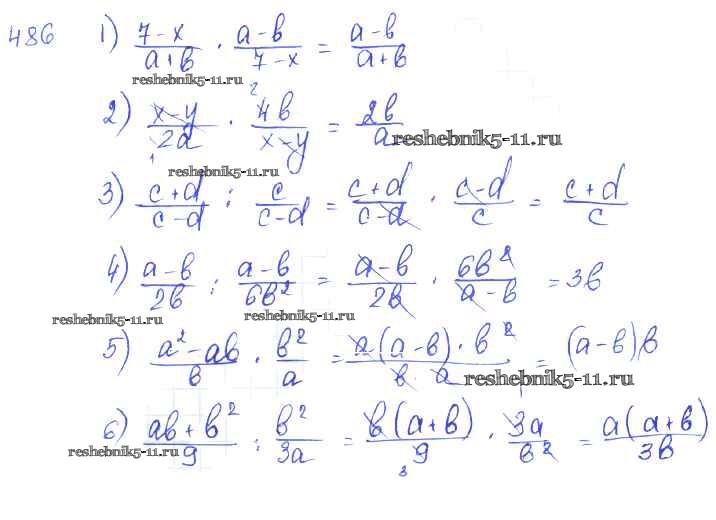 486 1) (7-x)/(a+b) · (a-b)/(7-x) = (a-b)/(a+b)
reshebnik5-11.ru
2) (x-y)/(2a) · (4b)/(x-y) = (2b)/a
reshebnik5-11.ru
reshebnik5-11.ru
3) (c+d)/(c-d) : c/(c-d) = (c+d)/(c-d) · (c-d)/c = (c+d)/c
4) (a-b)/(2b) : (a-b)/(6b²) = (a-b)/(2b) · (6b²)/(a-b) = 3b
reshebnik5-11.ru reshebnik5-11.ru
5) (a²-ab)/b · b²/a = (a(a-b)·b²)/(b·a) = (a-b)b
reshebnik5-11.ru
6) (ab+b²)/9 : b²/(3a) = (b(a+b))/9 · (3a)/b² = (a(a+b))/(3b)
reshebnik5-11.ru